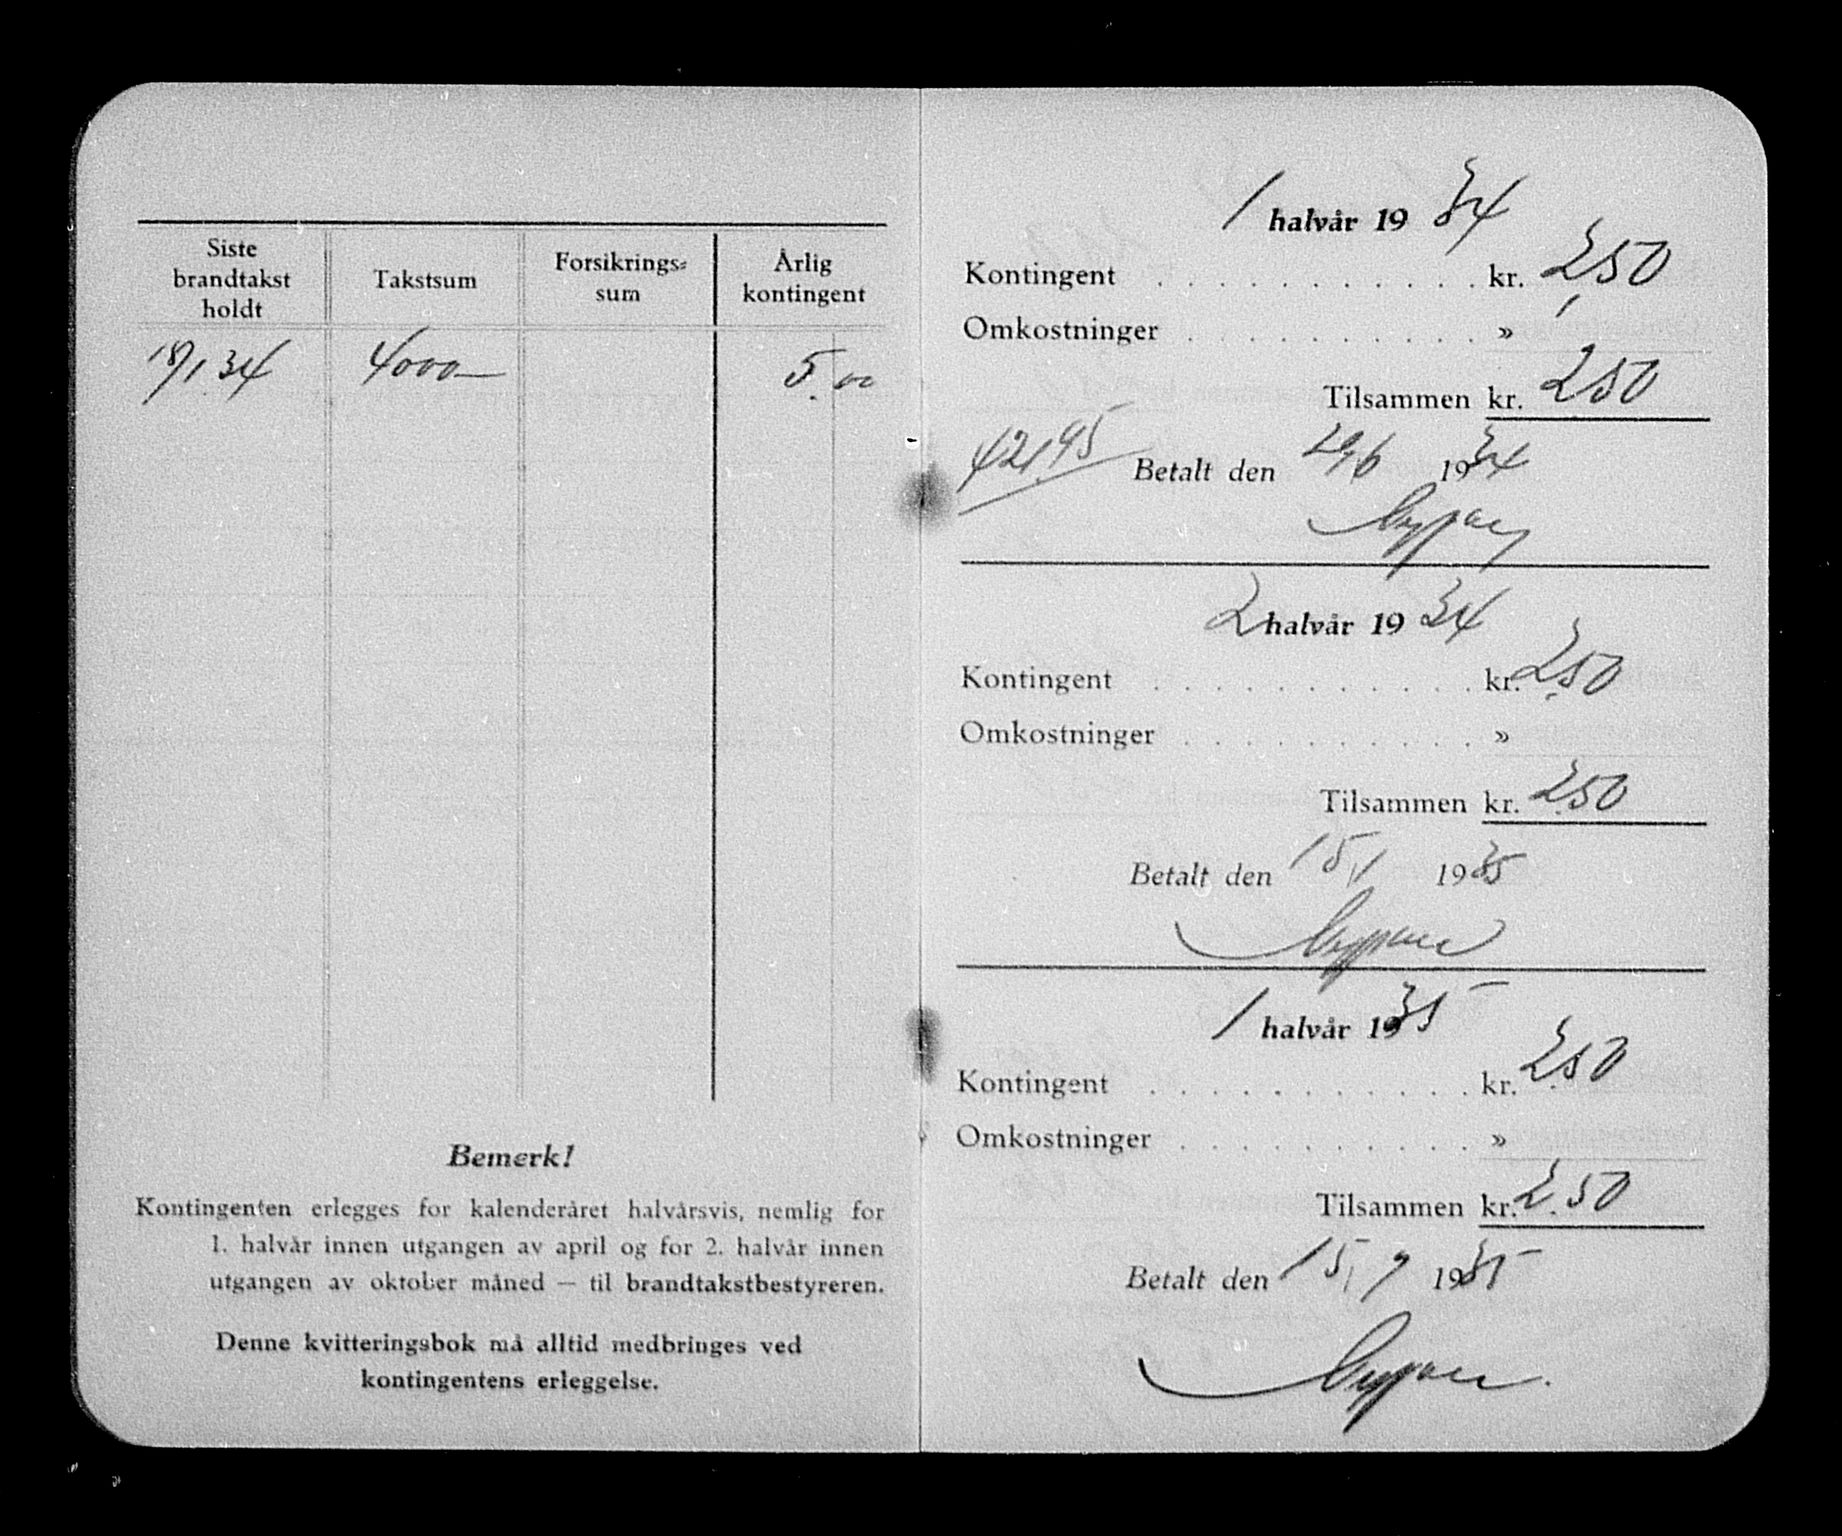 Siste
brandtakst
holdt
Takstsum
Forsikrings-
sum
Årlig
kontingent
18/1 34 4000— 5.00
Bemerk!
Kontingenten erlegges for kalenderåret halvårsvis, nemlig for
1. halvår innen utgangen av april og for 2. halvår innen
utgangen av oktober måned — til brandtakstbestyreren.
Denne kvitteringsbok må alltid medbringes ved
kontingentens erleggelse.
1 halvår 1934
Kontingent . . . . . . . . . . . kr. 2,50
Omkostninger . . . . . . . . . . »
Tilsammen kr. 2,50
42,95 Betalt den 29/6 1934
2 halvår 1934
Kontingent . . . . . . . . . . . kr. 2.50
Omkostninger . . . . . . . . . . »
Tilsammen kr. 2.50
Betalt den 15/1 1935
1 halvår 1935
Kontingent . . . . . . . . . . . kr. 2.50
Omkostninger . . . . . . . . . . »
Tilsammen kr. 2.50
Betalt den 15/7 1935